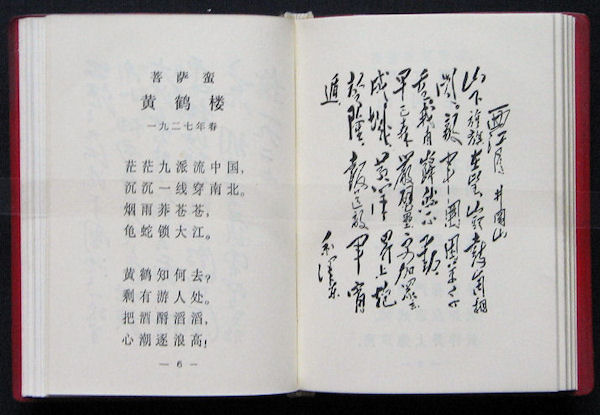 菩萨蛮
黄鹤楼
一九二七年春
茫茫九派流中国，
沉沉一线穿南北。
烟雨莽苍苍，
龟蛇锁大江。
黄鹤知何去？
剩有游人处。
把酒酹滔滔，
心潮逐浪高！
— 6 —
西江月 井冈山
山下旌旗在望山头鼓角相
闻敌军围困万千
重我自巋然不動
早已森嚴壁壘更加众志
成城黄洋界上炮
声隆報道敌軍宵
遁
毛泽东